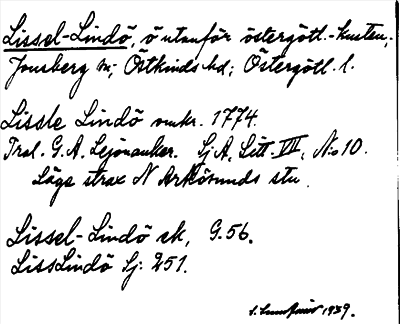 Lissel-Lindö, ö utanför östergötl.-kusten,
Jonsberg sn; Östkinds hd; Östergötl. l.
Lissle Lindö omkr. 1774.
Tral. G. A. Lejonanker. Sj A, Litt. VII, No 10.
Läge strax N Arkösunds stn.
Lissel-Lindö ek, G.56.
LissLindö Sj: 251.
1939.